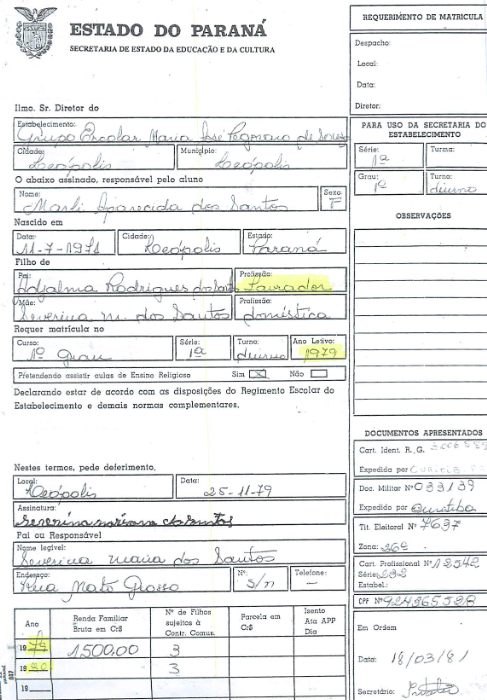 ESTADO DO PARANÁ
SECRETARIA DE ESTADO DA EDUCAÇÃO E DA CULTURA
Ilmo. Sr. Diretor do
Estabelecimento:
Grupo Escolar Maria José
Cidade: Município:
Leópolis Leópolis
O abaixo assinado, responsável pelo aluno
Nome: Sexo:
Marli Aparecida dos Santos F
Nascido em
Data: Cidade: Estado:
11-7-1971 Leópolis Paraná
Filho de
Pai: Profissão:
Adjalma Rodrigues dos Santos Lavrador
Mãe: Profissão:
Severina M. dos Santos doméstica
Requer matrícula no
Curso: Série: Turno: Ano Letivo:
1º Grau 1ª diurno 1979
Pretendendo assistir aulas de Ensino Religioso Sim X Não
Declarando estar de acordo com as disposições do Regimento Escolar do
Estabelecimento e demais normas complementares.
Nestes termos, pede deferimento,
Local: Data:
Leópolis 25-11-79
Assinatura:
Severina mariana dos santos
Pai ou Responsável
Nome legível:
Severina maria dos Santos
Endereço: Nº Telefone:
Rua Mato Grosso s/n —
Ano Renda Familiar Bruta em Cr$ Nº de Filhos sujeitos à Contr. Comus. Parcela em Cr$ Isento Ata APP Dia
1979 1.500,00 3
1980 3
REQUERIMENTO DE MATRICULA
Despacho:
Local:
Data:
Diretor:
PARA USO DA SECRETARIA DO
ESTABELECIMENTO
Série: Turma:
1ª
Grau: Turno:
1º diurno
OBSERVAÇÕES
DOCUMENTOS APRESENTADOS
Cart. Ident. R.G.
Expedida por
Doc. Militar Nº 033139
Expedido por Curitiba
Tit. Eleitoral Nº 7637
Zona: 26ª
Cart. Profissional Nº 12542
Série: 232
Estabel.:
CPF Nº 924365528
Em Ordem
Data: 18/03/81
Secretário: